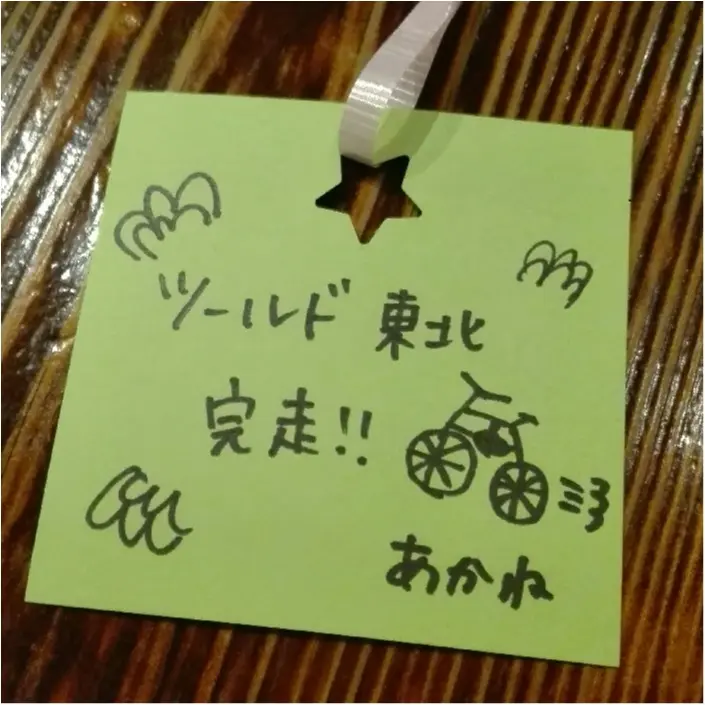 ツールド東北
完走!!
あかね